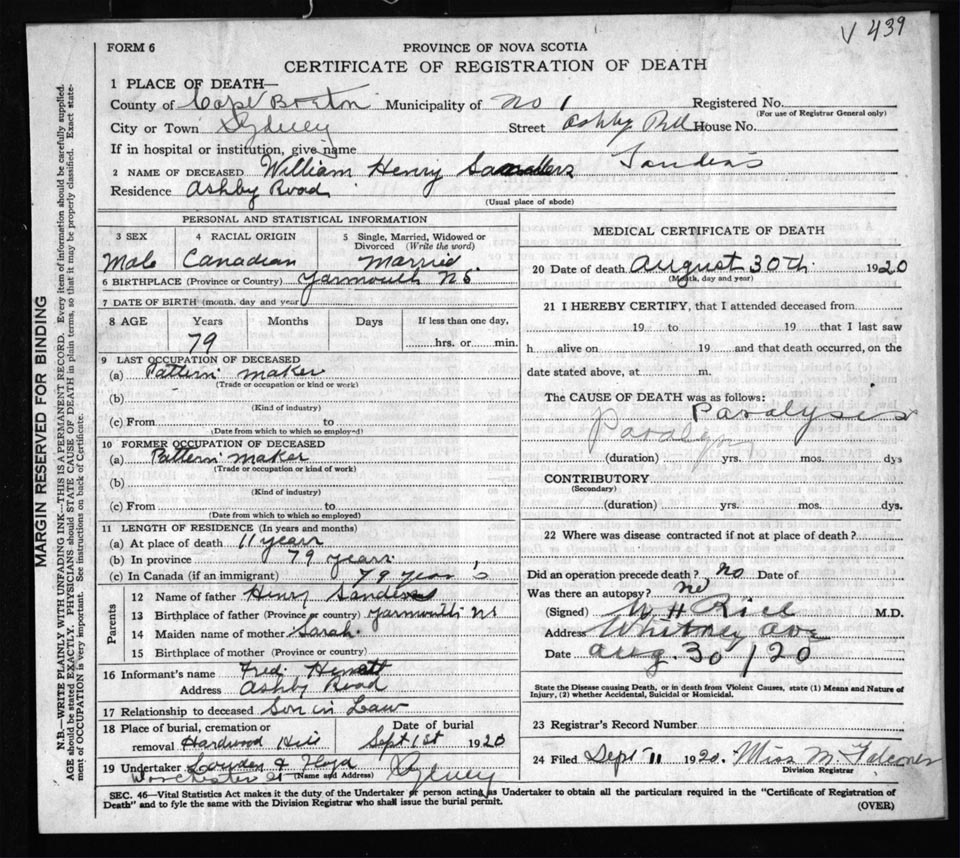 V 439
FORM 6
PROVINCE OF NOVA SCOTIA
CERTIFICATE OF REGISTRATION OF DEATH
1 PLACE OF DEATH—
County of Cape Breton Municipality of No 1 Registered No.
(For use of Registrar General only)
City or Town Sydney Street Ashby Rd House No.
If in hospital or institution, give name
2 NAME OF DECEASED William Henry Sanders
Residence Ashby Road
(Usual place of abode)
PERSONAL AND STATISTICAL INFORMATION
3 SEX 4 RACIAL ORIGIN 5 Single, Married, Widowed or Divorced (Write the word)
Male Canadian Married
6 BIRTHPLACE (Province or Country) Yarmouth NS.
7 DATE OF BIRTH (month, day and year)
8 AGE Years Months Days If less than one day,
79 hrs. or min.
9 LAST OCCUPATION OF DECEASED
(a) Pattern maker
(Trade or occupation or kind or work)
(b)
(Kind of industry)
(c) From to
(Date from which to which so employed)
10 FORMER OCCUPATION OF DECEASED
(a) Pattern maker
(Trade or occupation or kind of work)
(b)
(Kind of industry)
(c) From to
(Date from which to which so employed)
11 LENGTH OF RESIDENCE (In years and months)
(a) At place of death 11 years
(b) In province 79 years
(c) In Canada (if an immigrant) 79 years
Parents
12 Name of father Henry Sanders
13 Birthplace of father (Province or country) Yarmouth NS
14 Maiden name of mother Sarah
15 Birthplace of mother (Province or country)
16 Informant's name Fred
Address Ashby Road
17 Relationship to deceased Son in Law
18 Place of burial, cremation or Date of burial
removal Hardwood Hill Sept 1st 1920
19 Undertaker Lowden & Floyd
Dorchester St (Name and Address) Sydney
MEDICAL CERTIFICATE OF DEATH
20 Date of death August 30th 1920
(Month, day and year)
21 I HEREBY CERTIFY, that I attended deceased from
19 to 19 that I last saw
h alive on 19 and that death occurred, on the
date stated above, at m.
The CAUSE OF DEATH was as follows:
Paralyses
(duration) yrs. mos. dys
CONTRIBUTORY
(Secondary)
(duration) yrs. mos. dys.
22 Where was disease contracted if not at place of death?
Did an operation precede death? no Date of
Was there an autopsy? no
(Signed) W H Rice M.D.
Address Whitney Ave
Date Aug. 30 / 20
State the Disease causing Death, or in death from Violent Causes, state (1) Means and Nature of
Injury, (2) whether Accidental, Suicidal or Homicidal.
23 Registrar's Record Number
24 Filed Sept 11 1920. Miss M. Falconer
Division Registrar
SEC. 46—Vital Statistics Act makes it the duty of the Undertaker or person acting as Undertaker to obtain all the particulars required in the "Certificate of Registration of
Death" and to fyle the same with the Division Registrar who shall issue the burial permit. (OVER)
MARGIN RESERVED FOR BINDING
N.B.—WRITE PLAINLY WITH UNFADING INK—THIS IS A PERMANENT RECORD. Every item of information should be carefully supplied.
AGE should be stated EXACTLY. PHYSICIANS should STATE CAUSE OF DEATH in plain terms, so that it may be properly classified. Exact statement of OCCUPATION is very important. See instructions on back of Certificate.